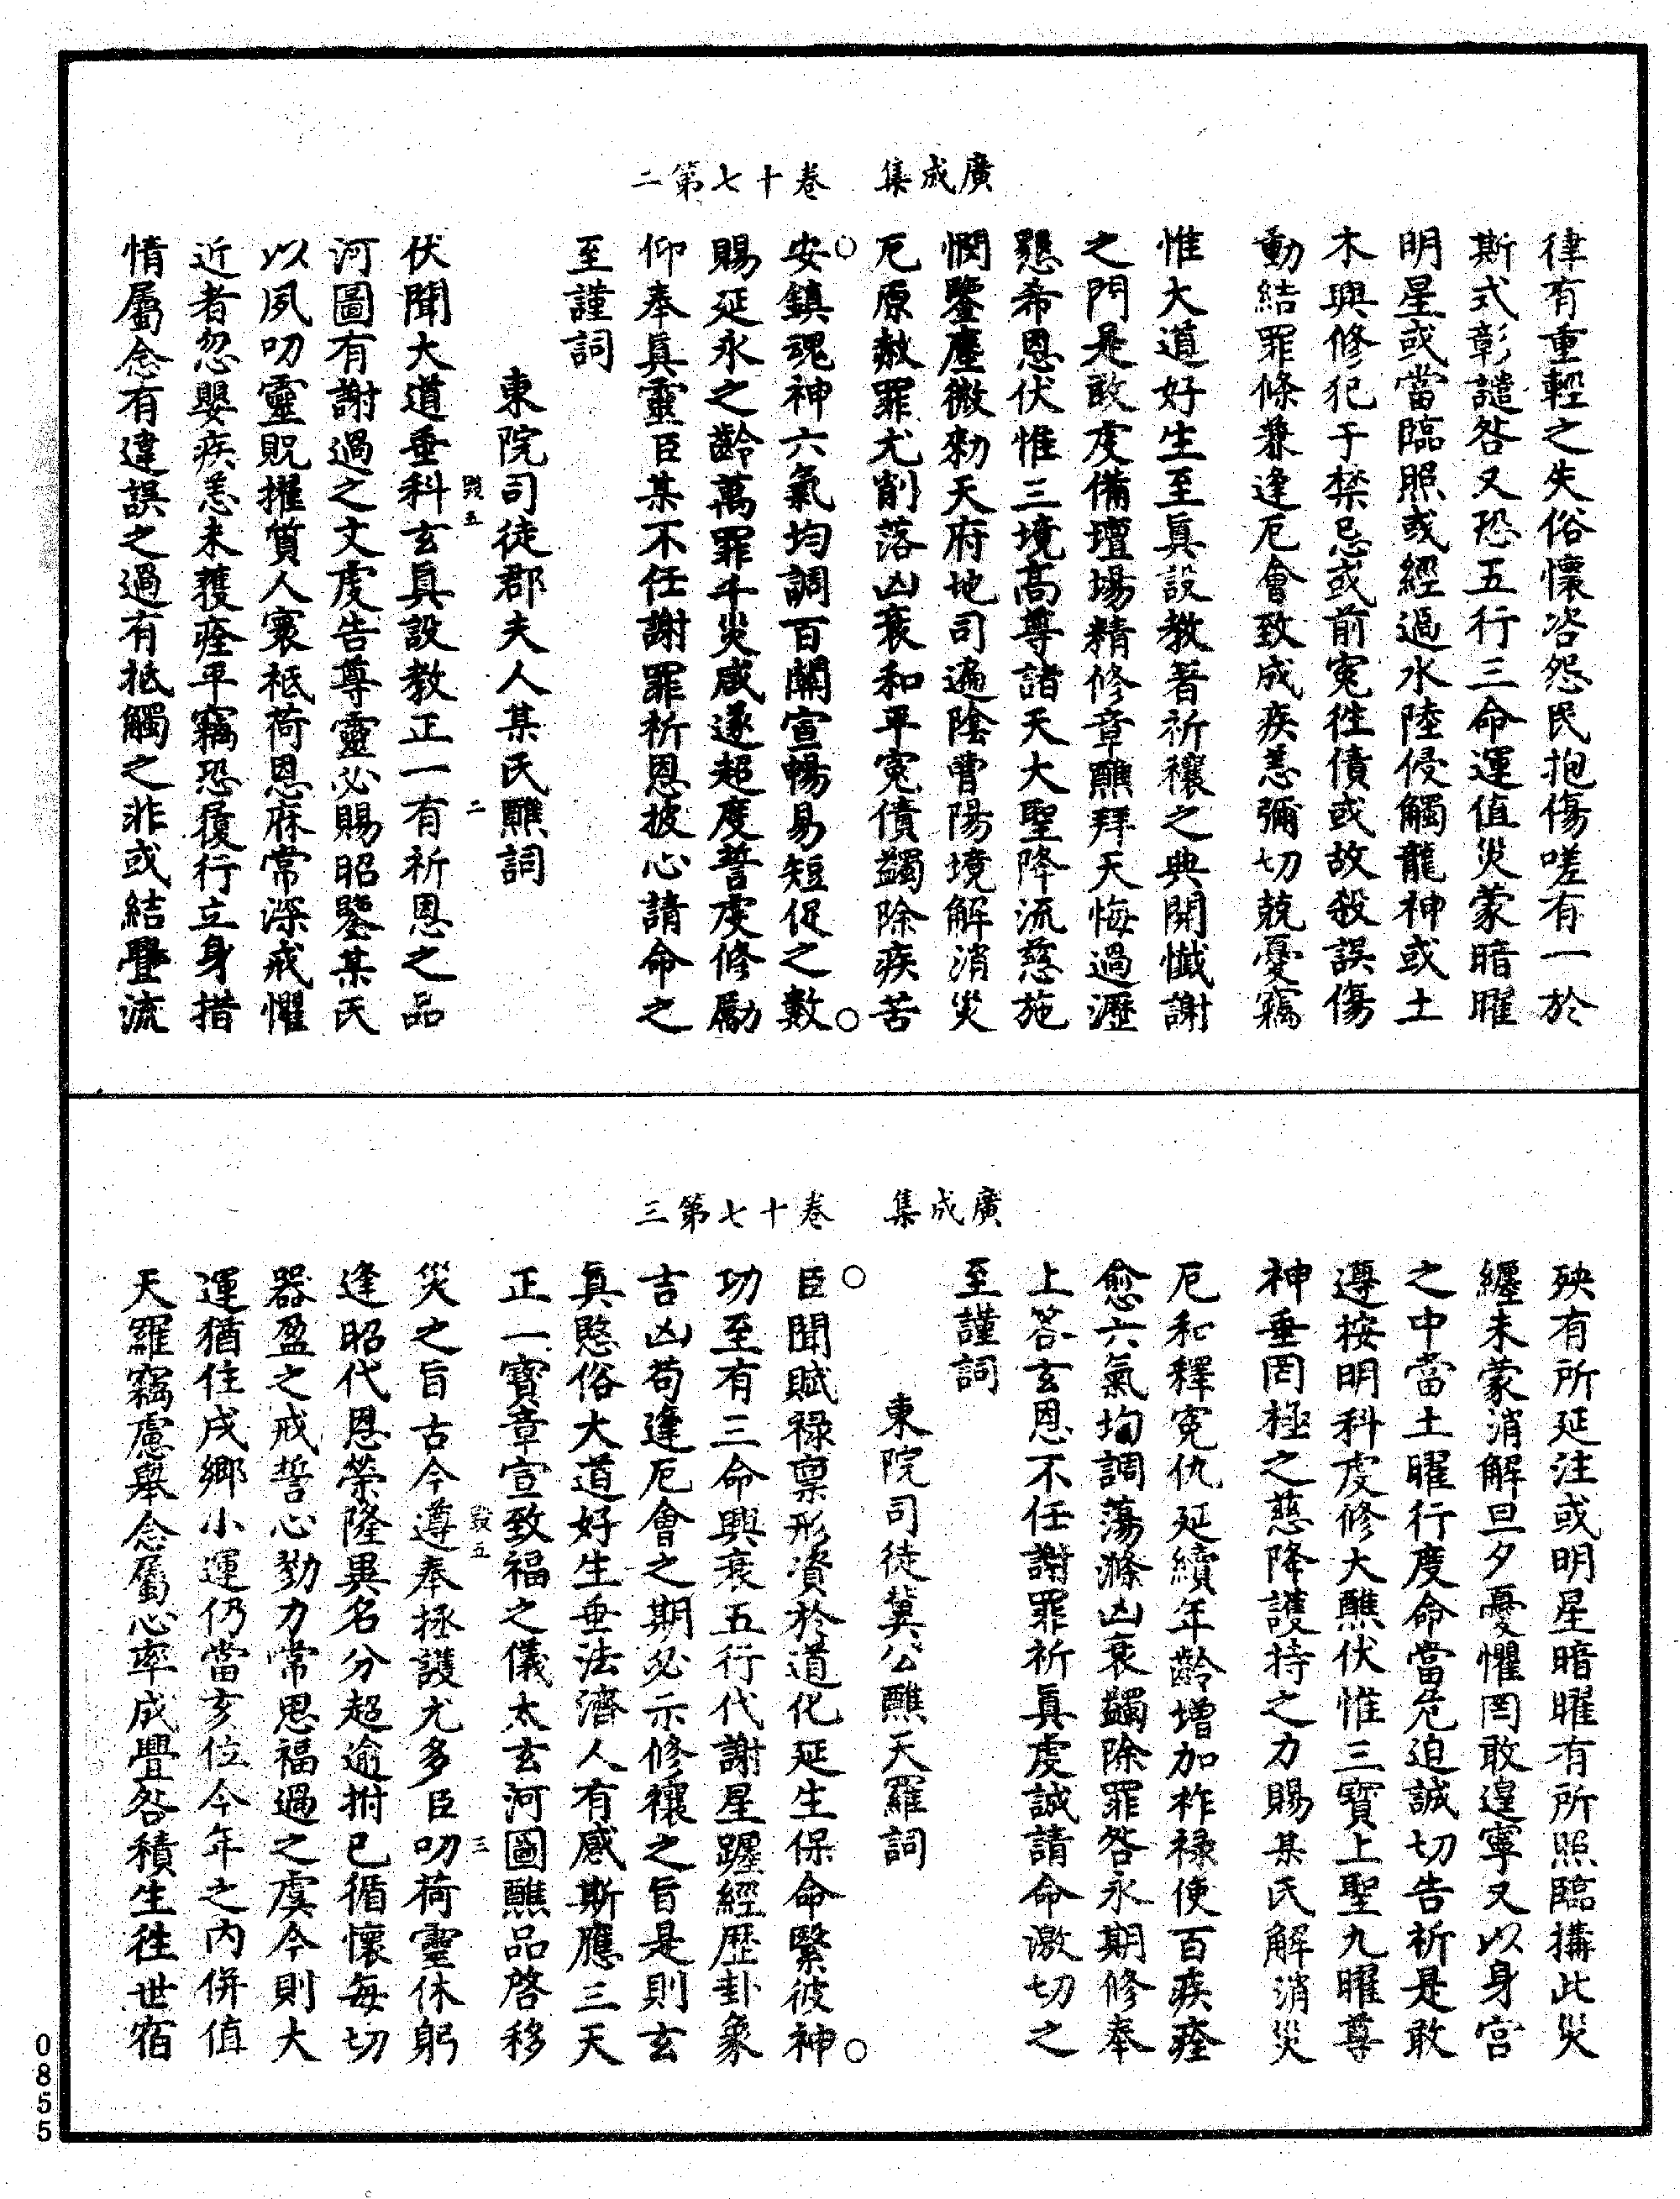 廣成集　卷十七第二
律有重輕之失俗懷咨怨民抱傷嗟有一於
斯式彰譴咎又恐五行三命運值災蒙暗曜
明星或當臨照或經過水陸侵觸龍神或土
木興修犯于禁忌或前冤徃債或故殺誤傷
動結罪條兼逢厄會致成疾恙彌切兢憂竊
惟大道好生至眞設教著祈禳之典開懺謝
之門是敢虔備壇場精修章醮拜天悔過瀝
懇希恩伏惟三境高尊諸天大聖降流慈施
憫鑒塵微勑天府地司遍陰曹陽境解消災
厄原赦罪尤削落凶衰和平冤債蠲除疾苦
安鎮魂神六氣均調百關宣暢易短促之數
賜延永之齡萬罪千災咸遂超度誓虔修勵
仰奉眞靈臣某不任謝罪祈恩披心請命之
至謹詞
東院司徒郡夫人某氏醮詞
伏聞大道垂科玄眞設教正一有祈恩之品
河圖有謝過之文虔告尊靈必賜昭鑒某氏
以夙叨靈貺擢質人寰祗荷恩庥常深戒懼
近者忽嬰疾恙未獲痊平竊恐履行立身措
情屬念有違誤之過有抵觸之非或結舋流
廣成集　卷十七第三
殃有所延注或明星暗曜有所照臨搆此災
纏未蒙消解旦夕憂懼罔敢遑寧又以身宮
之中當土曜行度命當危迫誠切告祈是敢
遵按明科虔修大醮伏惟三寶上聖九曜尊
神垂罔極之慈降護持之力賜某氏解消災
厄和釋冤仇延續年齡增加祚祿使百疾痊
愈六氣均調蕩滌凶衰蠲除罪咎永期修奉
上荅玄恩不任謝罪祈眞虔誠請命激切之
至謹詞
東院司徒冀公醮天羅詞
臣聞賦祿禀形資於道化延生保命緊彼神
功至有三命興衰五行代謝星躔經歷卦象
吉凶苟逢厄會之期必示修禳之旨是則玄
眞愍俗大道好生垂法濟人有感斯應三天
正一寶章宣致福之儀太玄河圖醮品啓移
災之旨古今遵奉拯護尤多臣叨荷靈休躬
逢昭代恩榮隆異名分超逾拊已循懷每切
器盈之戒誓心勠力常思福過之虞今則大
運猶住戌鄉小運仍當亥位今年之內併值
天羅竊慮舉念屬心牽成舋咎積生徃世宿
0855